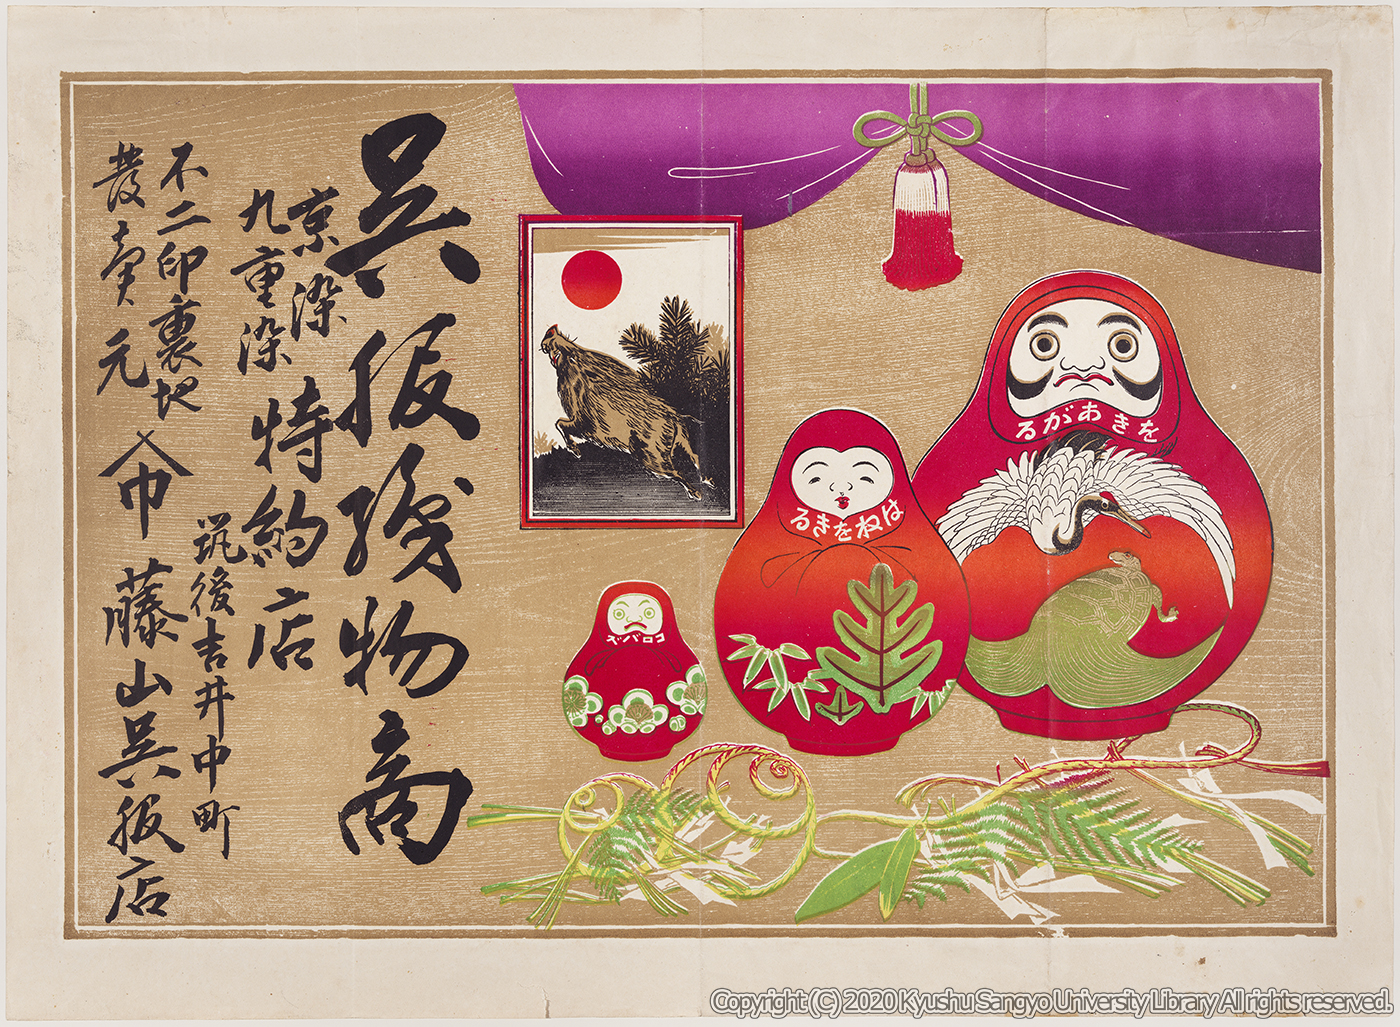 をきあがる
はねをきる
コロバズ
呉服織物商
京染
九重染
特約店
不二印裏地
發賣元
筑後吉井中町
巾 藤山呉服店
Copyright (C) 2020 Kyushu Sangyo University Library All rights reserved.